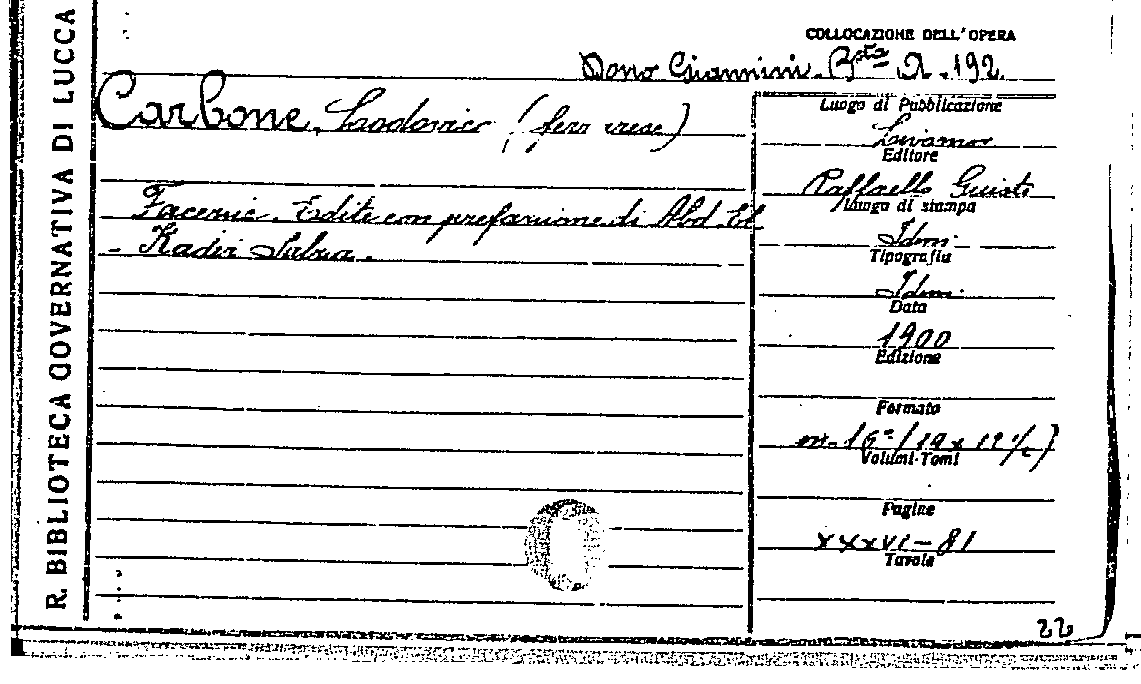 R. BIBLIOTECA GOVERNATIVA DI LUCCA
COLLOCAZIONE DELL'OPERA
Dono Giannini. Bsta A. 192.
Carbone, Lodovico (ferrarese)
Facezie. Edite con prefazione di Abd-El
- Kader Salza.
Luogo di Pubblicazione
Livorno
Editore
Raffaello Giusti
Luogo di stampa
Idem
Tipografia
Idem
Data
1900
Edizione
Formato
in-16° (19 x 12 ½)
Volumi-Tomi
Pagine
XXXVI-81
Tavole
22